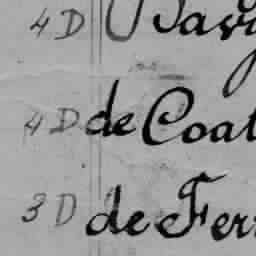 4 D
4 D de Coat
3 D de Fer